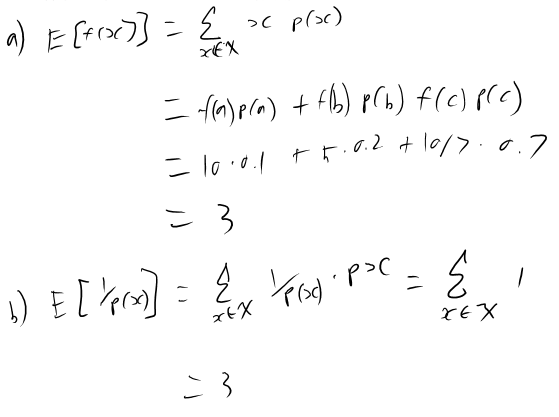 a) E[f(x)] = ∑ x∈X x p(x)
= f(a)p(a) + f(b) p(b) f(c) p(c)
= 10 · 0.1 + 5 · 0.2 + 10/7 · 0.7
= 3
b) E[1/p(x)] = ∑ x∈X 1/p(x) · px = ∑ x∈X 1
= 3